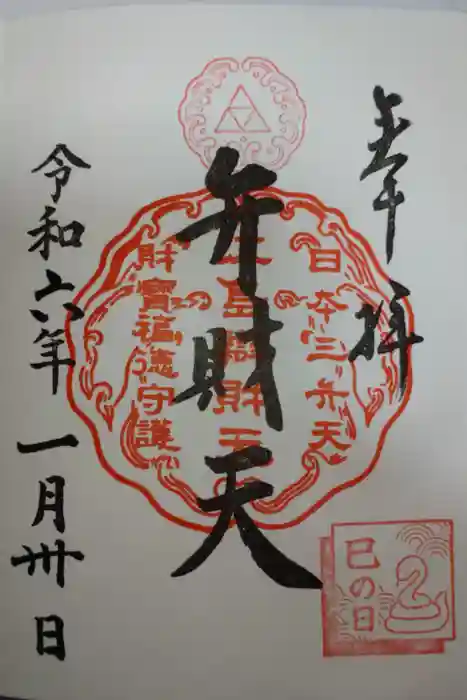 奉拝
日本三弁天
弁財天
財寳福徳守護
令和六年一月卅日
巳の日